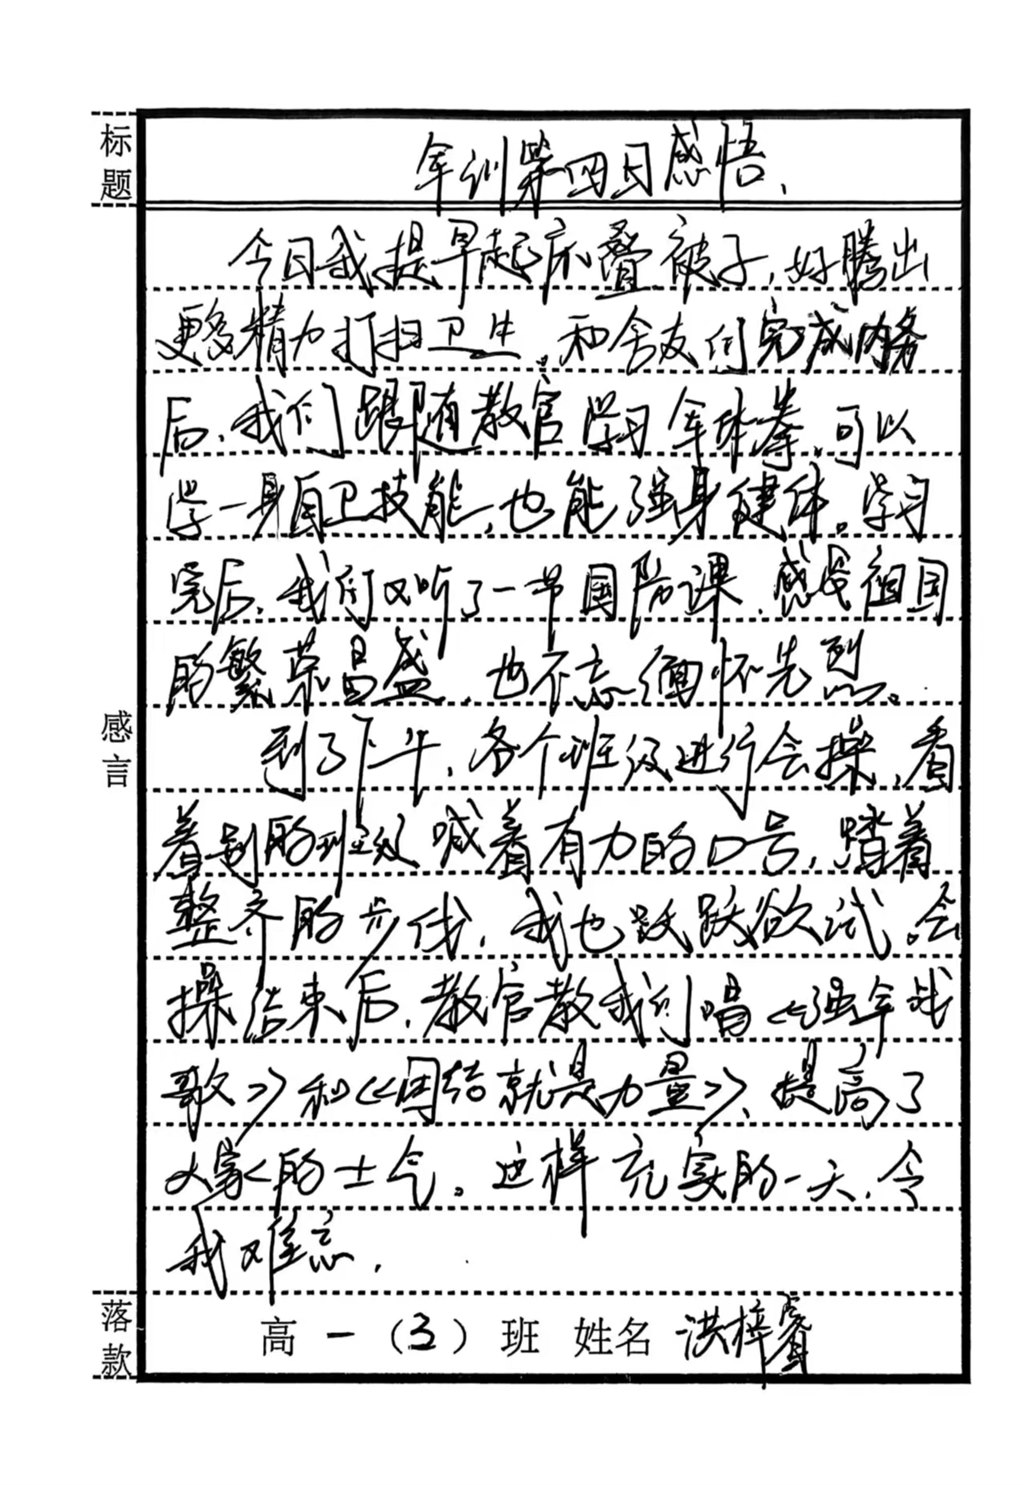 标题
军训第四日感悟.
今日我提早起床叠被子,好腾出
更多精力打扫卫生。和舍友们完成内务
后,我们跟随教官学习军体拳,可以
学一身自卫技能,也能强身健体。学习
完后,我们又听了一节国防课,感受祖国
的繁荣昌盛,也不忘缅怀先烈。
感言
到了下午,各个班级进行会操,看
着别的班级喊着有力的口号,踏着
整齐的步伐,我也跃跃欲试。会
操结束后,教官教我们唱《强军战
歌》和《团结就是力量》,提高了
大家的士气。这样充实的一天,令
我难忘.
落款
高一(3)班 姓名 洪梓睿